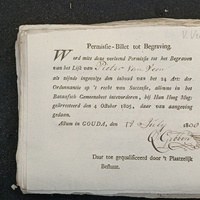 Permissie-Billet tot Begraving.
Word mits deze verleend Permissie tot het Begraven
van het Lijk van Pieter van
als zijnde ingevolge den inhoud van het 24 Art: der
Ordonnantie op 't recht van Successie, alomme in het
Bataafsch Gemeenebest intevoeren, bij Hun Hoog Mog:
gearresteerd den 4 October 1805, daar van aangeving
gedaan.
Actum in GOUDA, den 19 July 180
Daar toe gequalificeerd door 't Plaatselijk
Bestuur.